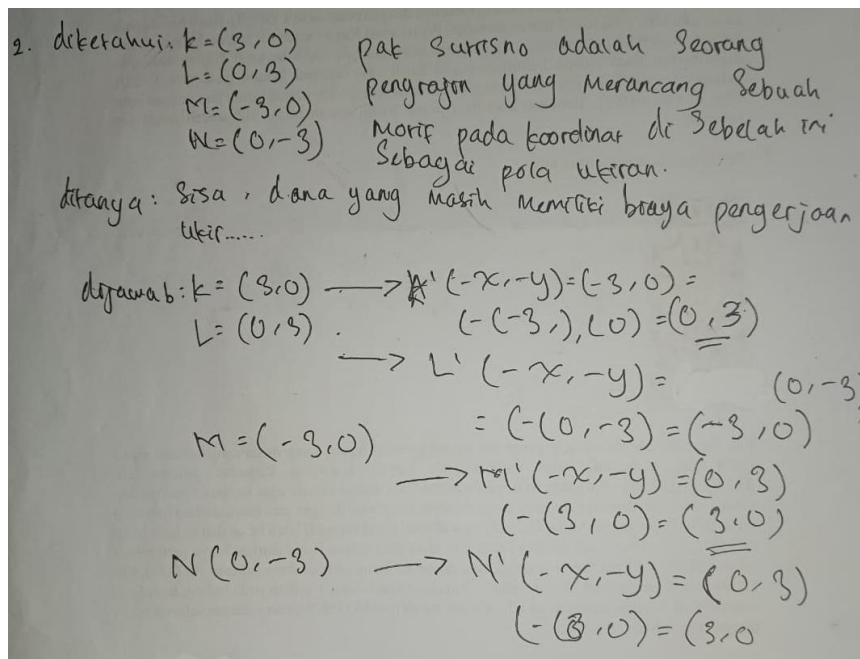 2. diketahui: k = (3,0) pak Sutrisno adalah Seorang
L = (0,3) pengrajin yang Merancang Sebuah
M = (-3,0) Motif pada koordinat di Sebelah ini
N = (0,-3) Sebagai pola ukiran.
ditanya: Sisa, dana yang Masih Memiliki biaya pengerjaan
Ukir......
dijawab: k = (3,0) → A' (-x,-y) = (-3,0) =
L = (0,3). (-(-3,),(0) = (0,3)
→ L' (-x,-y) = (0,-3)
= (-(0,-3) = (-3,0)
M = (-3,0)
→ M' (-x,-y) = (0,3)
(-(3,0) = (3.0)
N (0,-3) → N' (-x,-y) = (0,3)
(-(3,0) = (3,0